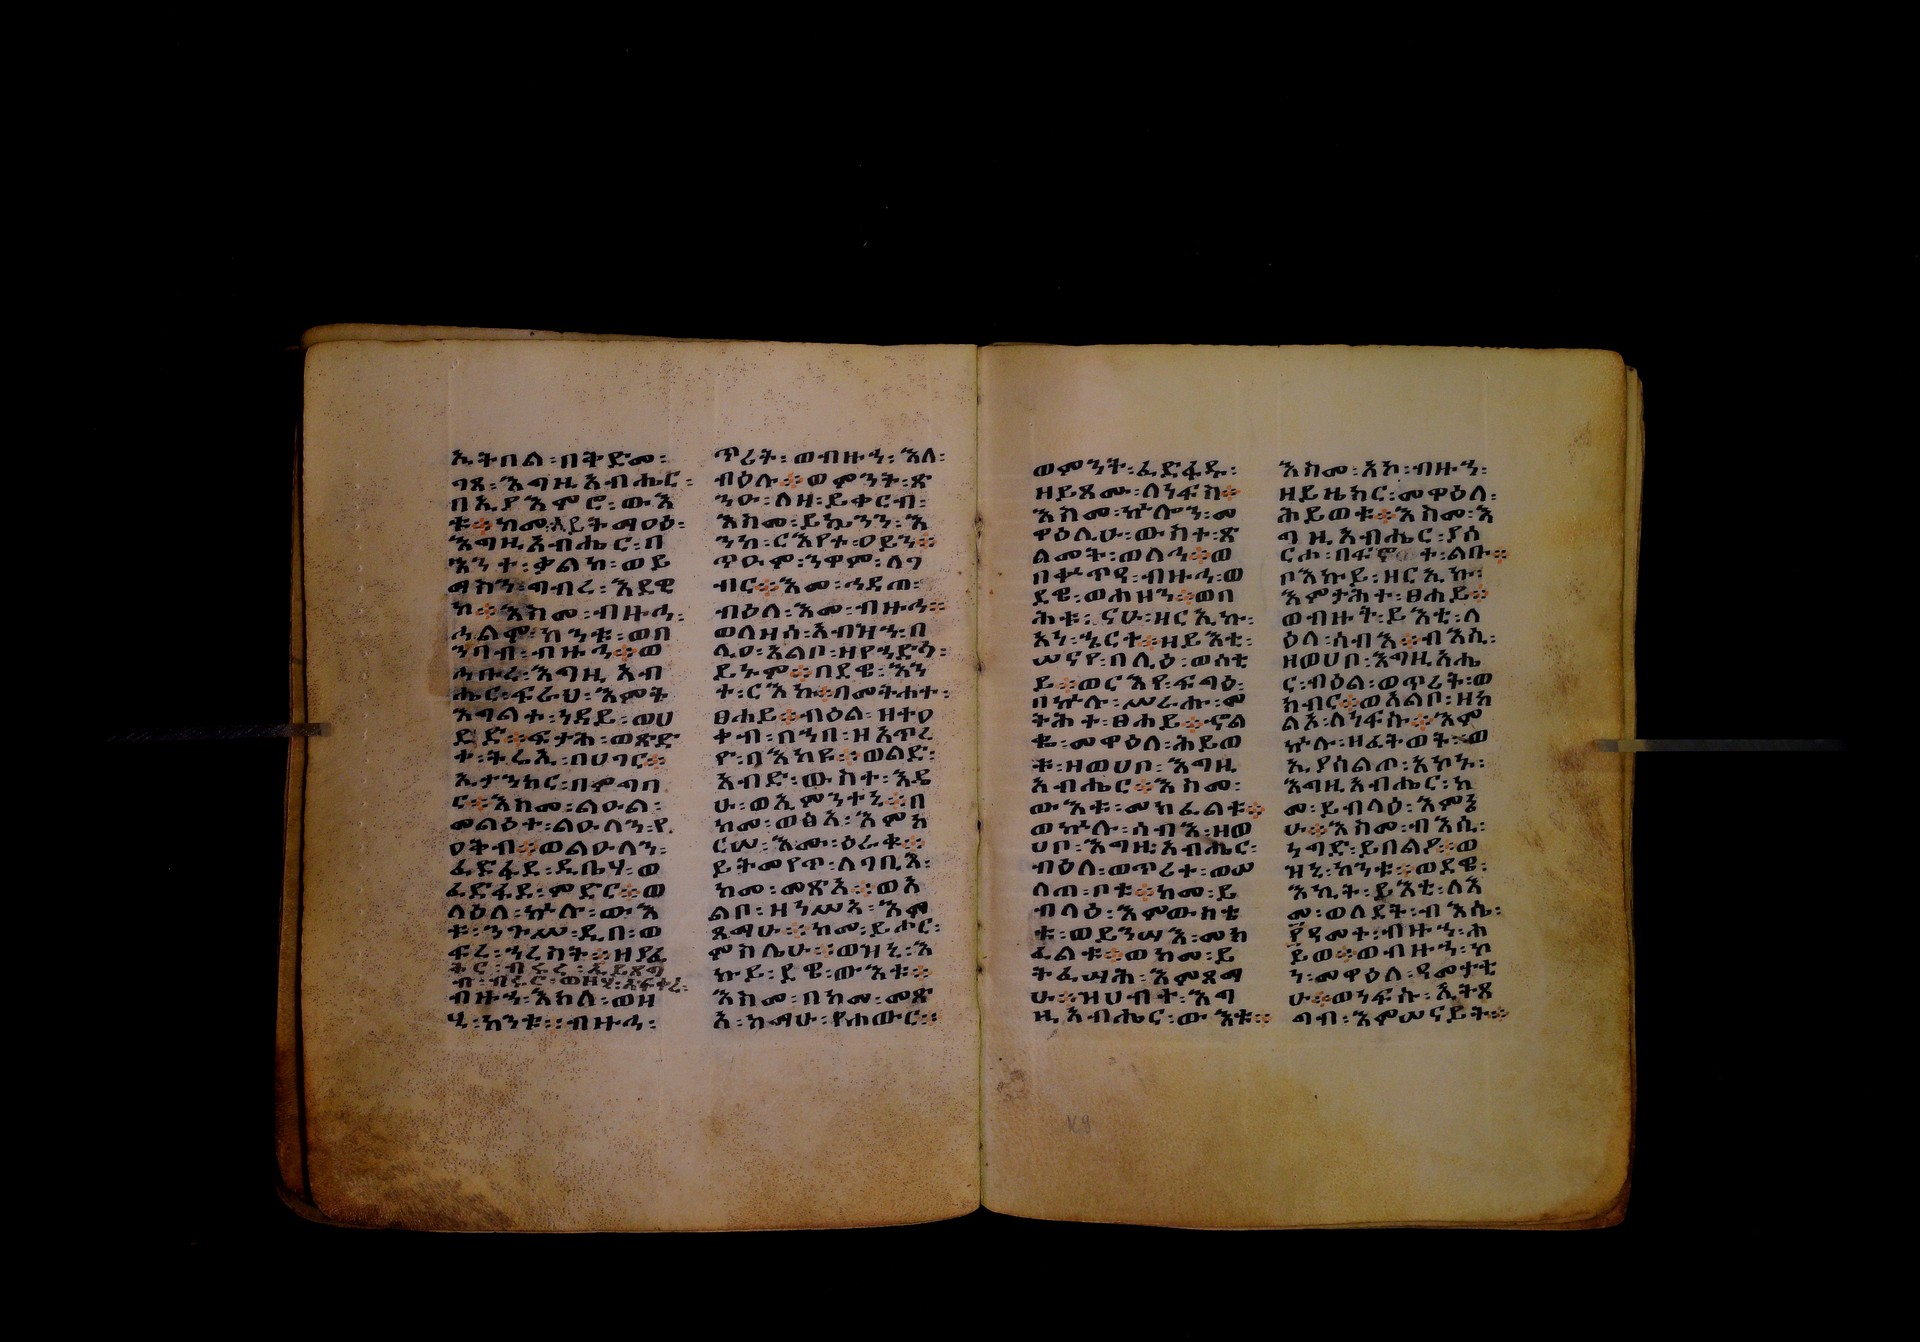 ኢትበል፡በቅድመ፡
ገጸ፡እግዚአብሔር፡
በኢያእምሮ፡ውእ
ቱ፡፡ከመ፡አይትማዐዕ፡
እግዚአብሔር፡በ
እንተ፡ቃልከ፡ወይ
ማስን፡ግብረ፡እደዊ
ከ፡፡እስመ፡ብዙኅ፡
ሕልም፡ከንቱ፡፡ወበ
ንባብ፡ብዙኅ፡፡ወ
ሐቡረ፡እግዚአብ
ሔር፡ፍራህ፡እምት
እግልተ፡ነዳይ፡ወሀ
ይድ፡፡ፍታሕ፡ወጽድ
ቀ፡ትሬኢ፡በሀገር፡፡
ኢታንክር፡በምግባ
ር፡፡እስመ፡ልዑል፡
መልዕተ፡ልዑላን፡የ
ዐትብ፡፡ወልዑላን፡
ፈድፋደ፡ዲቤሃ፡ወ
ፈድፋደ፡ምድር፡፡ወ
ላዕለ፡ኵሉ፡ውእ
ቱ፡ንጉሥ፡ዲበ፡ወ
ፍሬ፡ኀረከት፡፡ዘያፈ
ቅር፡ብሩረ፡ኢይጸግ
ብ፡ብሩር፡ወዘሂ፡አፍቀረ፡
ብዙኅ፡እክለ፡ወዘ
ሂ፡ከንቱ፡፡ብዙኅ፡
ጥሪት፡ወብዙኅ፡እለ፡
ብዕሉ፡፡ወምንት፡ጽ
ንዑ፡ለዘ፡ይቀርብ፡
እስመ፡ይኴንን፡እ
ንከ፡ርእየተ፡ዐይን፡፡
ጥዑም፡ንዋም፡ለገ
ብር፡፡እመ፡ኅዳጠ፡
ብዕለ፡እመ፡ብዙኅ፡፡
ወለዘሰ፡አብዝኀ፡በ
ሊዐ፡አልቦ፡ዘየኀድጎ፡
ይኑም፡፡በደዌ፡እን
ተ፡ርእኩ፡፡በመትሕተ፡
ፀሐይ፡፡ብዕል፡ዘተዐ
ቀብ፡በኀበ፡ዘአጥረ
ዮ፡በእከዩ፡፡ወልድ፡
አብድ፡ውስተ፡እዴ
ሁ፡ወኢምንተኒ፡፡በ
ከመ፡ወፅአ፡እምከ
ርሠ፡እሙ፡ዕራቁ፡፡
ይትመየጥ፡ለገቢእ፡
ከመ፡መጽአ፡፡ወአ
ልቦ፡ዘንሥአ፡እም
ጻማሁ፡፡ከመ፡ይሖር፡
ምስሌሁ፡፡ወዝኒ፡እ
ኩይ፡ደዌ፡ውእቱ፡፡
እስመ፡በከመ፡መጽ
አ፡ከማሁ፡የሐውር፡፡
ወምንት፡ፈድፋዱ፡
ዘይጻሙ፡ለነፍስ፡፡
እስመ፡ኵሎን፡መ
ዋዕሊሁ፡ውስተ፡ጽ
ልመት፡ወለኅ፡፡ወ
በቍጥዓ፡ብዙኅ፡ወ
ደዌ፡ወሐዘን፡፡ወበ
ሕቱ፡ናሁ፡ዘርኢኩ፡
አን፡ኄርተ፡፡ዘይእቲ፡
ሠናየ፡በሊዕ፡ወሰቲ
ይ፡፡ወርእየ፡ፍግዕ፡
በኵሉ፡ሥራሑ፡መ
ትሕተ፡ፀሐይ፡፡ኆል
ቈ፡መዋዕለ፡ሕይወ
ቱ፡ዘወሀቦ፡እግዚ
አብሔር፡፡እስመ፡
ውእቱ፡መክፈልቱ፡፡
ወኵሉ፡ሰብእ፡ዘወ
ሀቦ፡እግዚአብሔር፡
ብዕለ፡ወጥሪተ፡ወሠ
ለጠ፡ቦቱ፡፡ከመ፡ይ
ብላዕ፡እምውስቴ
ቱ፡ወይንሣእ፡መክ
ፈልቱ፡፡ወከመ፡ይ
ትፈሣሕ፡እምጻማ
ሁ፡፡ዝሀብት፡እግ
ዚአብሔር፡ውእቱ፡፡
እስመ፡አኮ፡ብዙኅ፡
ዘይዜከር፡መዋዕለ፡
ሕይወቱ፡፡እስመ፡እ
ግዚአብሔር፡ያሰ
ርሖ፡በፍሥሐተ፡ልቡ፡፡
ቦእኩይ፡ዘርኢኩ፡
እምታሕተ፡ፀሐይ፡፡
ወብዙኅት፡ይእቲ፡ለ
ዕለ፡ሰብእ፡፡ብእሲ፡
ዘወሀቦ፡እግዚአብሔ
ር፡ብዕል፡ወጥሪት፡ወ
ክብር፡፡ወአልቦ፡ዘክ
ልእ፡ለነፍሱ፡፡እም
ኵሉ፡ዘፈትወት፡፡ወ
ኢያሰልጦ፡እኮኑ፡
እግዚአብሔር፡ከ
መ፡ይብላዕ፡እምኔ
ሁ፡፡እስመ፡ብእሲ፡
ነግድ፡ይበልዖ፡፡ወ
ዝኒ፡ከንቱ፡፡ወደዌ፡
እኪት፡ይእቲ፡ለእ
መ፡ወለደት፡ብእሲ፡
፻ዓመተ፡ብዙኅ፡ሐ
ይወ፡፡ወብዙኅ፡ኮ
ነ፡መዋዕለ፡ዓመታቲ
ሁ፡፡ወነፍሱ፡ኢትጸ
ግብ፡እምሠናይት፡፡